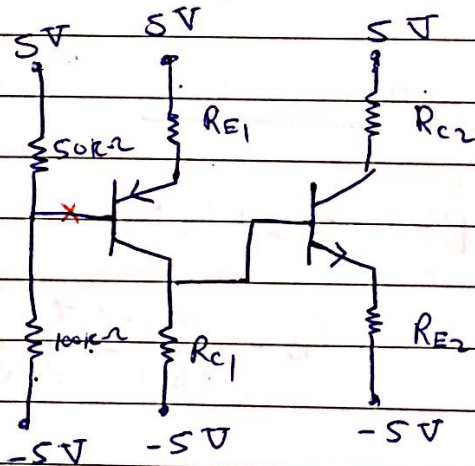 5V 5V 5V
50KΩ RE1 RC2
100KΩ RC1 RE2
-5V -5V -5V